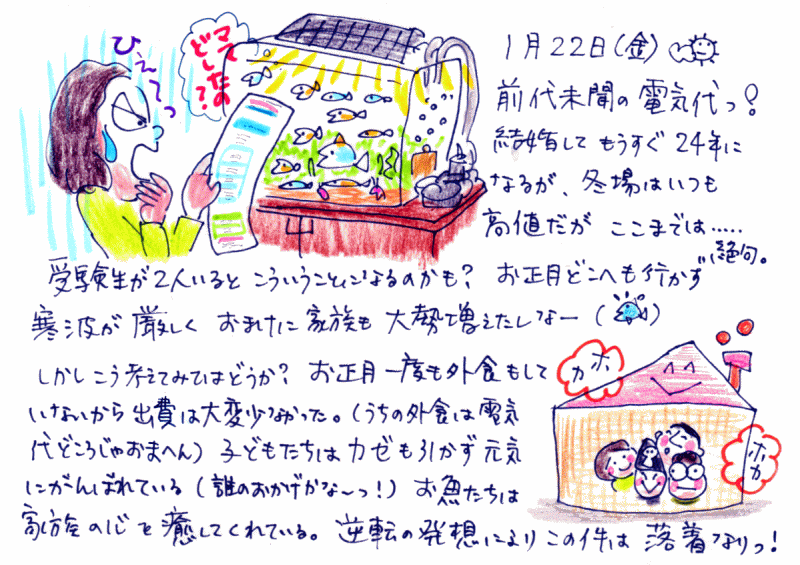 ひぇぇ〜っ
ママ
どしたの
?
1月22日(金)
前代未聞の電気代っ?
結婚して もうすぐ 24年に
なるが、冬場はいつも
高値だが ここまでは……
絶句。
受験生が2人いると こういうことになるのかも? お正月どこへも行かず
寒波が厳しく おまけに 家族も 大勢増えたしなー( )
しかしこう考えてみてはどうか? お正月一度も外食もして
いないから 出費は大変少なかった。(うちの外食は電気
代どころじゃおまへん)子どもたちは カゼも引かず 元気
にがんばれている(誰のおかげかな〜っ!) お魚たちは
家族の心を癒してくれている。逆転の発想により この件は 落着なりっ!
ホ
カ
ホ
カ